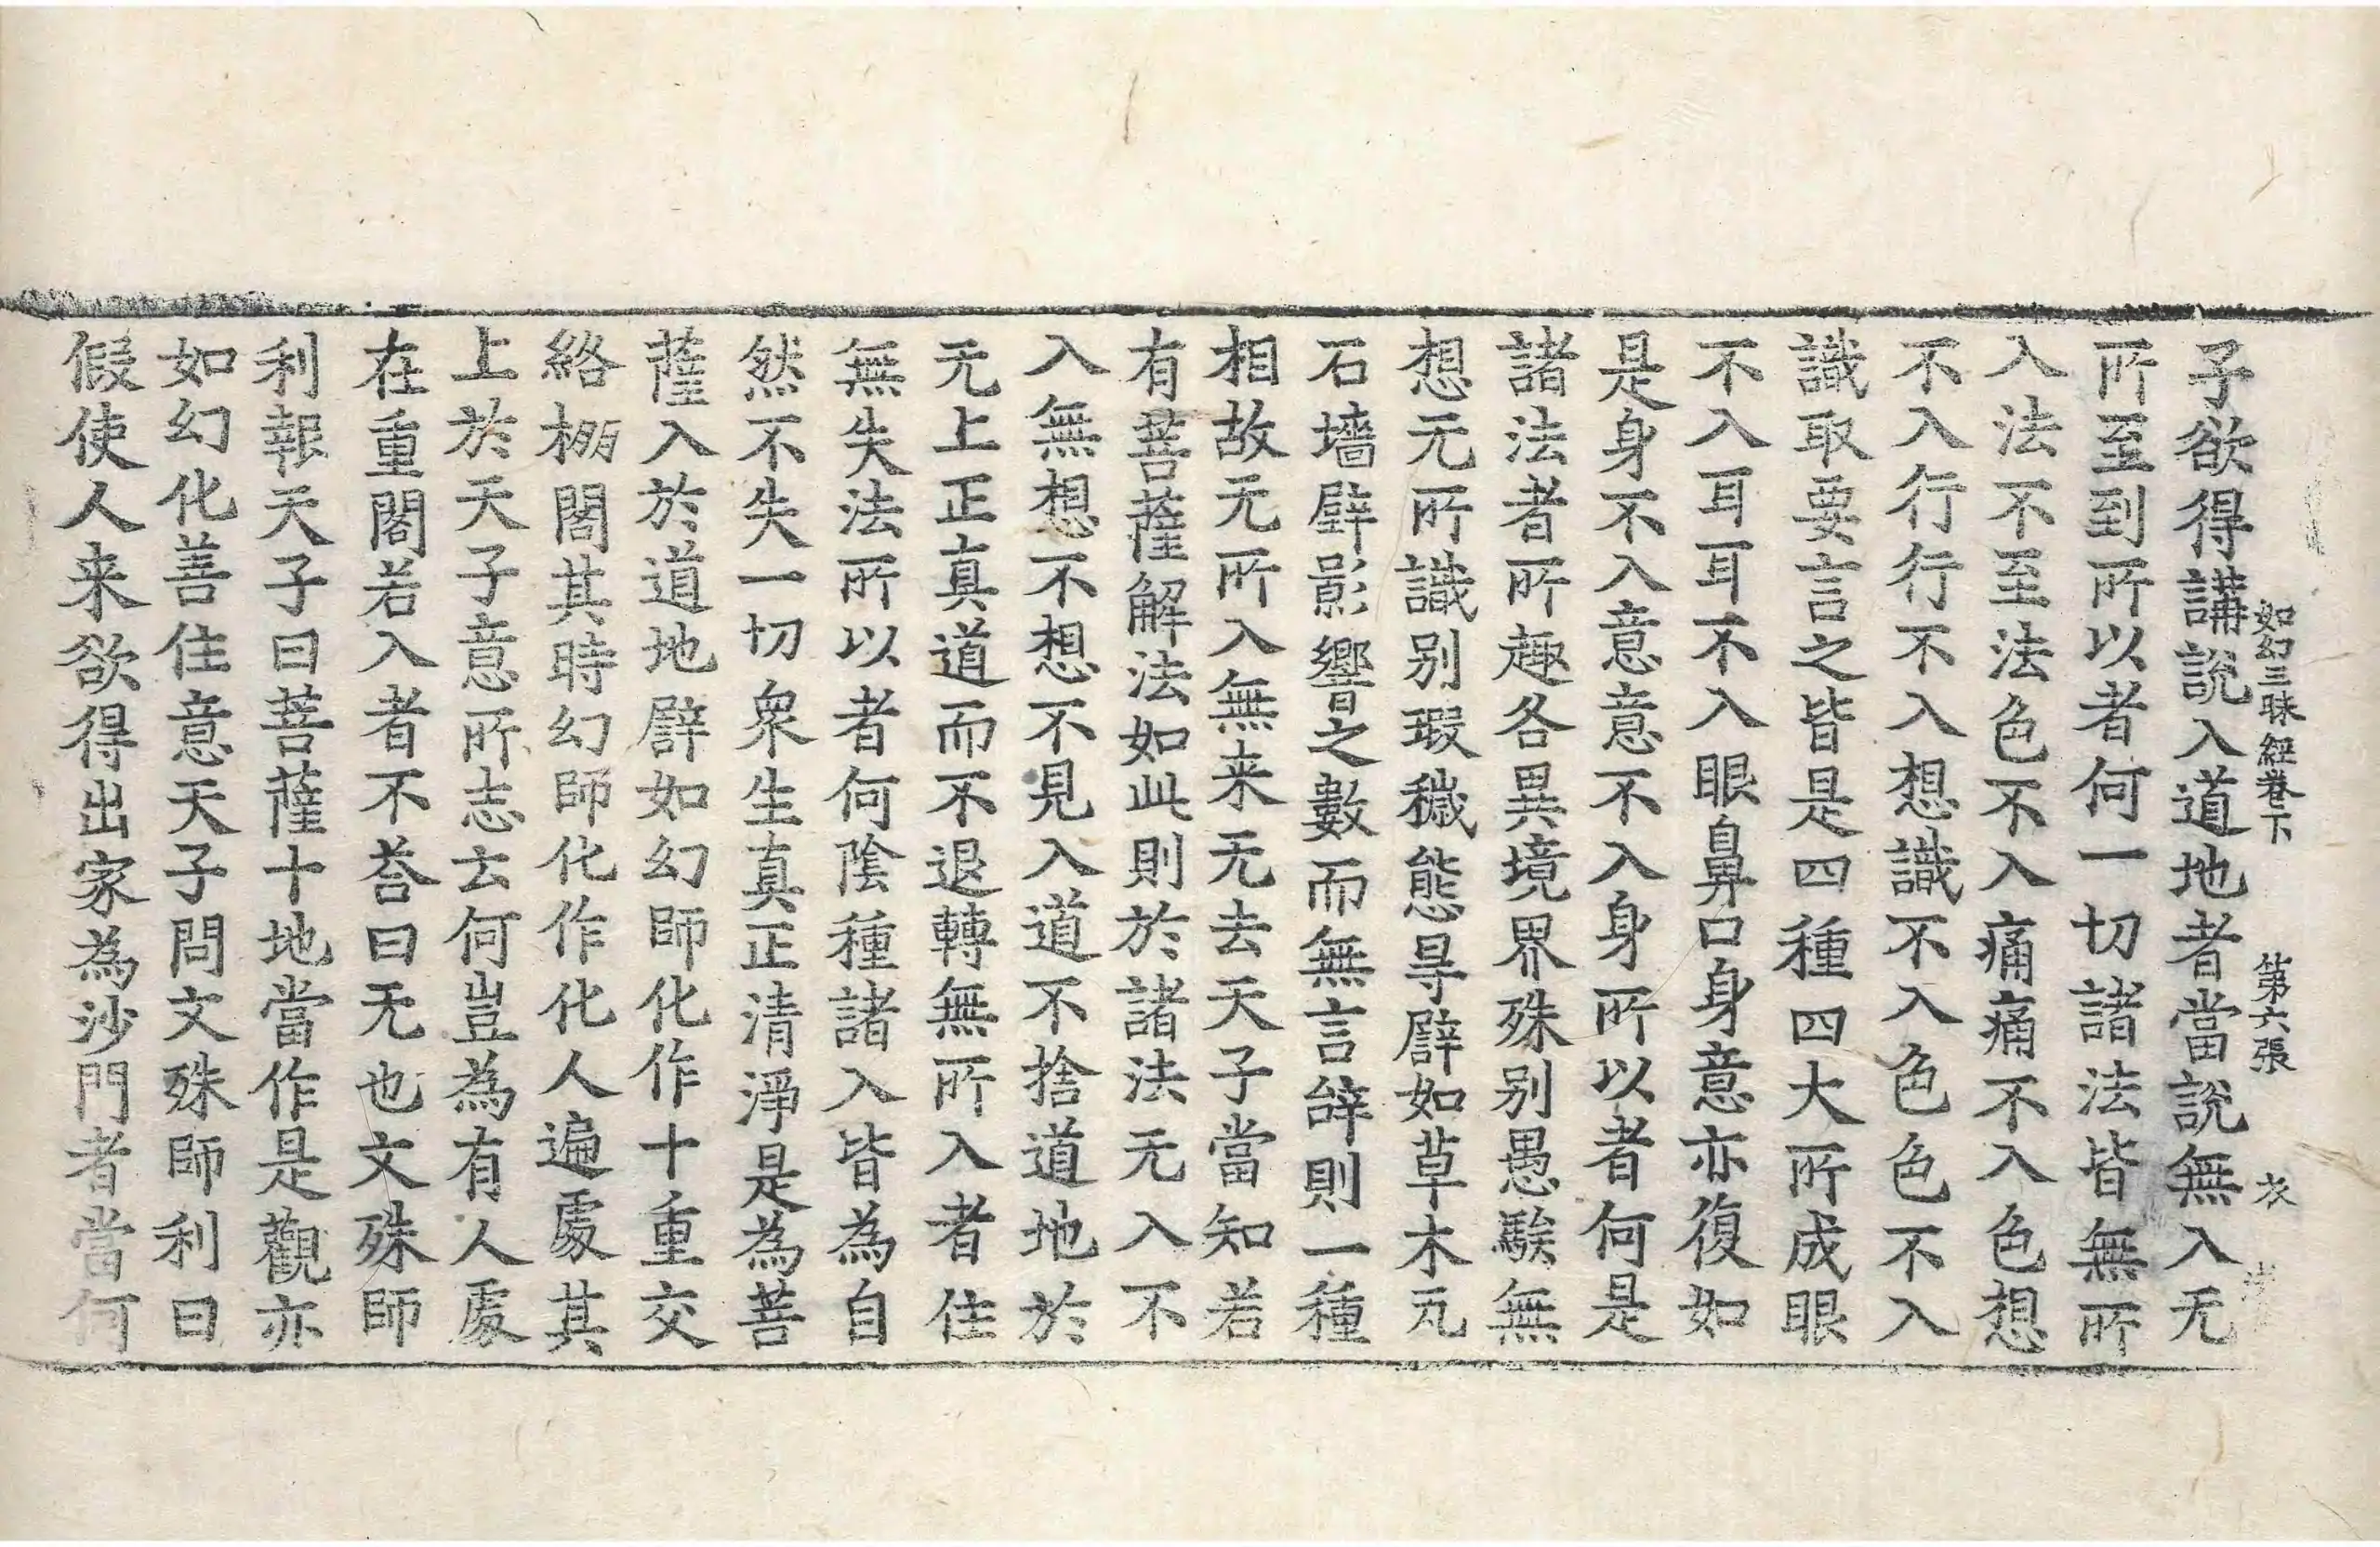 如幻三昧經卷下 第六張 衣
子欲得講説入道地者當説無入无
所至到所以者何一切諸法皆無所
入法不至法色不入痛痛不入色想
不入行行不入想識不入色色不入
識取要言之皆是四種四大所成眼
不入耳耳不入眼鼻口身意亦復如
是身不入意意不入身所以者何是
諸法者所趣各異境界殊别愚騃無
想无所識别瑕穢態㝵辟如草木瓦
石墻壁影響之數而無言辝則一種
相故无所入無来无去天子當知若
有菩薩解法如此則於諸法无入不
入無想不想不見入道不捨道地於
无上正真道而不退轉無所入者住
無失法所以者何陰種諸入皆為自
然不失一切衆生真正清淨是為菩
薩入於道地辟如幻師化作十重交
絡棚閣其時幻師化作化人遍䖏其
上於天子意所志云何豈為有人䖏
在重閣若入者不荅曰无也文殊師
利報天子曰菩薩十地當作是觀亦
如幻化善住意天子問文殊師利曰
假使人来欲得出家為沙門者當何